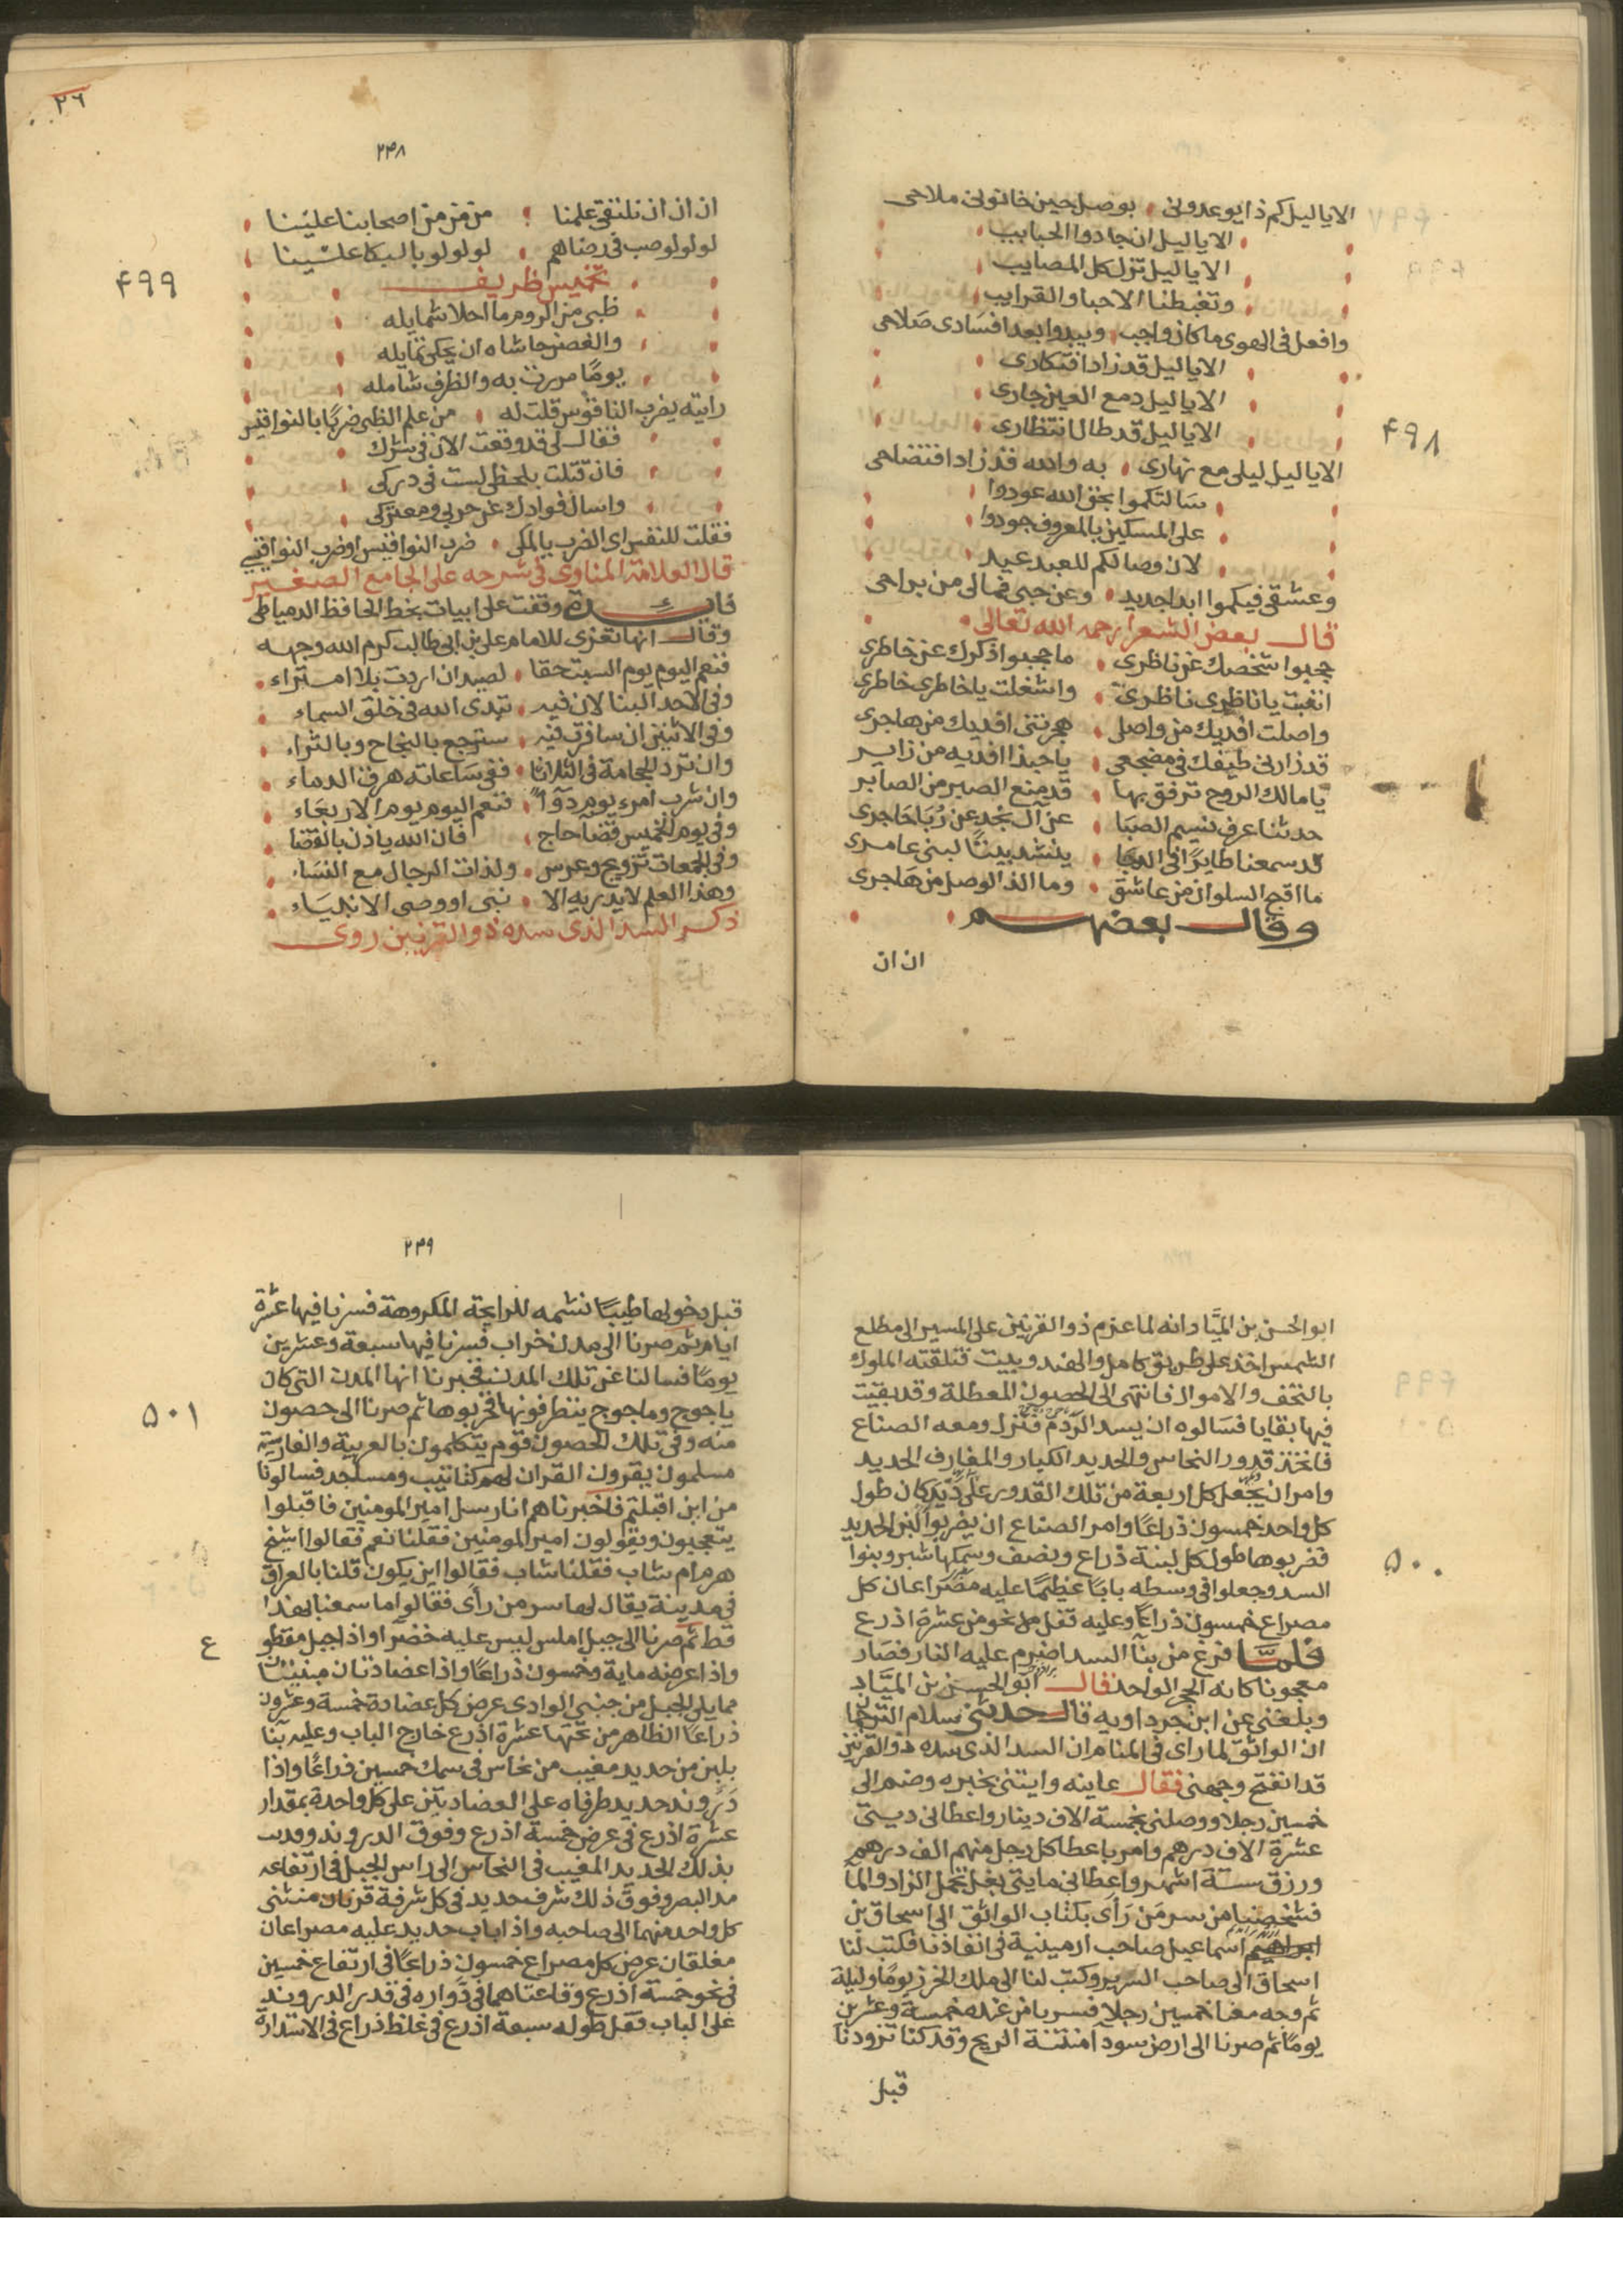 الاياليل كم ذا يوعدونى بوصل حين خانونى ملاحى
الاياليل ان جادوا الحبايب
الاياليل تزل كل المصايب
وتغبطنا الاحبا والقرايب
وافعل فى الهوى ما كان واجب ويبدوا بعد افسادى صلاحى
الاياليل قد زاد افتكارى
الاياليل دمع العين جارى
الاياليل قد طال انتظارى
۴۹۸
الاياليل ليلى مع نهارى به والله قد زاد افتضاحى
سالتكموا بحق الله عودوا
على المسكين بالمعروف جودوا
لان وصالكم للعبد عيد
وعشقى فيكموا ابدا جديد وعن حبى فمالى من براحى
قال بعض الشعرا رحمه الله تعالى
حجبوا شخصك عن ناظرى ما حجبوا ذكرك عن خاطرى
ان غبت يا ناظرى ناظرى واشغلت يا خاطرى خاطرى
واصلت افديك من واصلى هجرتنى افديك من هاجرى
قد زارنى طيفك فى مضجعى يا حبذا افديه من زاير
يا مالك الروح ترفق بها قد منع الصبر من الصابر
حدثنا عرف نسيم الصبا عن آل نجد عن رُبَا حاجرى
قد سمعنا طايرًا فى الدجا ينشد بيتًا لبنى عامرى
ما اقبح السلوان من عاشق وما الذ الوصل من هاجرى
وقال بعضهم
ان ان
۲٦
۲۴۸
ان ان ان نلتقى علمنا من من من اصحابنا علينا
لو لو لو صب فى رضاهم لو لو لو بالبكا علينا
۴۹۹
تخميس ظريف
ظبى من الروم ما احلا شمايله
والغصن حاشاه ان يحكى تمايله
يومًا مررت به والظرف شامله
رايته يضرب الناقوس قلت له من علم الظبى ضربًا بالنواقيس
فقال لى قد وقعت الان فى شرك
فان قتلت بلحظى لست فى دركى
واسال فوادك عن حربى ومعتركى
فقلت للنفس اى الضرب يالمكى ضرب النواقيس او ضرب النوى قيسى
قال العلامة المناوى فى شرحه على الجامع الصغير
فايدة وقفت على ابيات بخط الحافظ الدمياطى
وقال انها تعزى للامام على بن ابى طالب كرم الله وجهه
فنعم اليوم يوم السبت حقا لصيد ان اردت بلا امتراء
وفى الاحد البنا لان فيه تبدى الله فى خلق السماء
وفى الاثنين ان سافرت فيه سترجع بالنجاح وبالثراء
وان ترد الحجامة فى الثلاثا ففى ساعاته هرق الدماء
وان شرب امرء يوم دوآءً فنعم اليوم يوم الاربعاء
وفى يوم الخميس قضآ حاج فان الله ياذن بالقضا
وفى الجمعات تزويج وعرس ولذات الرجال مع النساء
وهذا العلم لا يدريه الا نبى او وصى الانبياء
ذكر السد الذى سده ذو القرنين روى
ابو الحسن بن الميَّاد انه لما عزم ذو القرنين على المسير الى مطلع
الشمس اخذ على طريق كامل والهند وبيت فتلقته الملوك
بالتحف والاموال فانتهى الى الحصون المعطلة وقد بقيت
فيها بقايا فسالوه ان يسد الردم فنزل ومعه الصناع
فاتخذ قدور النحاس والحديد الكبار والمغارف الحديد
وامر ان يجعل كل اربعة من تلك القدور على كان طول
كل واحد خمسون ذراعًا وامر الصناع ان يضربوا لبن الحديد
فضربوها طول كل لبنة ذراع ونصف وسمكها شبر وبنوا
۵۰۰
السد وجعلوا فى وسطه بابًا عظيمًا عليه مصراعان كل
مصراع خمسون ذراعًا وعليه قفل من نحو من عشرة اذرع
فلمّا فرغ من بنآ السد اضرم عليه النار فصار
معجونا كانه الحجر الواحد قال ابو الحسن بن الميَّاد
وبلغنى عن ابن خرداويه قال حدثنى سلام الترجمان
ان الواثق لما راى فى المنام ان السد الذى سده ذو القرنين
قد انفتح وجهنى فقال عاينه وايتنى بخبره وضم الى
خمسين رجلا ووصلنى بخمسة الاف دينار واعطانى ديتى
عشرة الاف درهم وامر باعطا كل رجل منهم الف درهم
ورزق ستة اشهر واعطانى مايتى بغل تحمل الزاد والمآ
فشخصنا من سر من رَأى بكتاب الواثق الى اسحاق بن
اسماعيل صاحب ارمينية فى انفاذنا فكتب لنا
اسحاق الى صاحب السرير وكتب لنا الى ملك الخزر يومًا وليلة
ثم وجه معنا خمسين رجلا فسرنا من عنده خمسة وعشرين
يومًا ثم صرنا الى ارض سودآ منتنة الريح وقد كنا تزودنا
قبل
۲۴۹
قبل دخولها طيبًا نشمه للرايحة المكروهة فسرنا فيها عشرة
ايام ثم صرنا الى مدن خراب فسرنا فيها سبعة وعشرين
يومًا فسالنا عن تلك المدن فخبرنا انها المدن التى كان
ياجوج وماجوج ينظرفونها فخربوها ثم صرنا الى حصون
۵۰۱
منه وفى تلك الحصون قوم يتكلمون بالعربية والفارسية
مسلمون يقرون القران لهم كتاتيب ومساجد فسالونا
من اين اقبلتم فاخبرناهم انا رسل امير المومنين فاقبلوا
يتعجبون ويقولون امير المومنين فقلنا نعم فقالوا اشيخ
هرم ام شاب فقلنا شاب فقالوا اين يكون قلنا بالعراق
فى مدينة يقال لها سر من رأى فقالوا ما سمعنا بهذا
قط ثم صرنا الى جبل املس ليس عليه خضرآ واذا جبل مقطوع
واذا عرضه ماية وخمسون ذراعًا واذا عضادتان مبنيتان
مما يلى الجبل من جنبى الوادى عرض كل عضادة خمسة وعشرون
ذراعًا الظاهر من تحتها عشرة اذرع خارج الباب وعليه بنآ
بلبن من حديد مغيب من نحاس فى سمك خمسين ذراعًا واذا
دروند حديد طرفاه على العضادتين على كل واحدة بمقدار
عشرة اذرع فى عرض خمسة اذرع وفوق الدروند
بذلك الحديد المغيب فى النحاس الى راس الجبل فى ارتفاعه
مد البصر وفوق ذلك شرف حديد فى كل شرفة قرنان منثنى
كل واحد منهما الى صاحبه واذا باب حديد عليه مصراعان
مغلقان عرض كل مصراع خمسون ذراعًا فى ارتفاع خمسين
فى نحو خمسة اذرع وقاعتاهما فى دواره فى قدر الدروند
على الباب قفل طوله سبعة اذرع فى غلظ ذراع فى الاستدارة